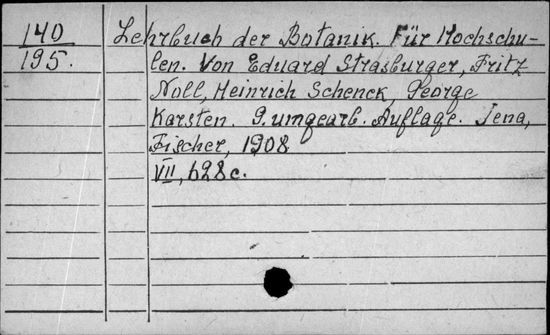 140
195.
Lehrbuch der Botanik. Für Hochschu-
len. Von Eduard Strasburger, Fritz
Noll, Heinrich Schenck, George
Karsten. 9. umgearb. Auflage. Jena,
Fischer, 1908
VII, 628c.